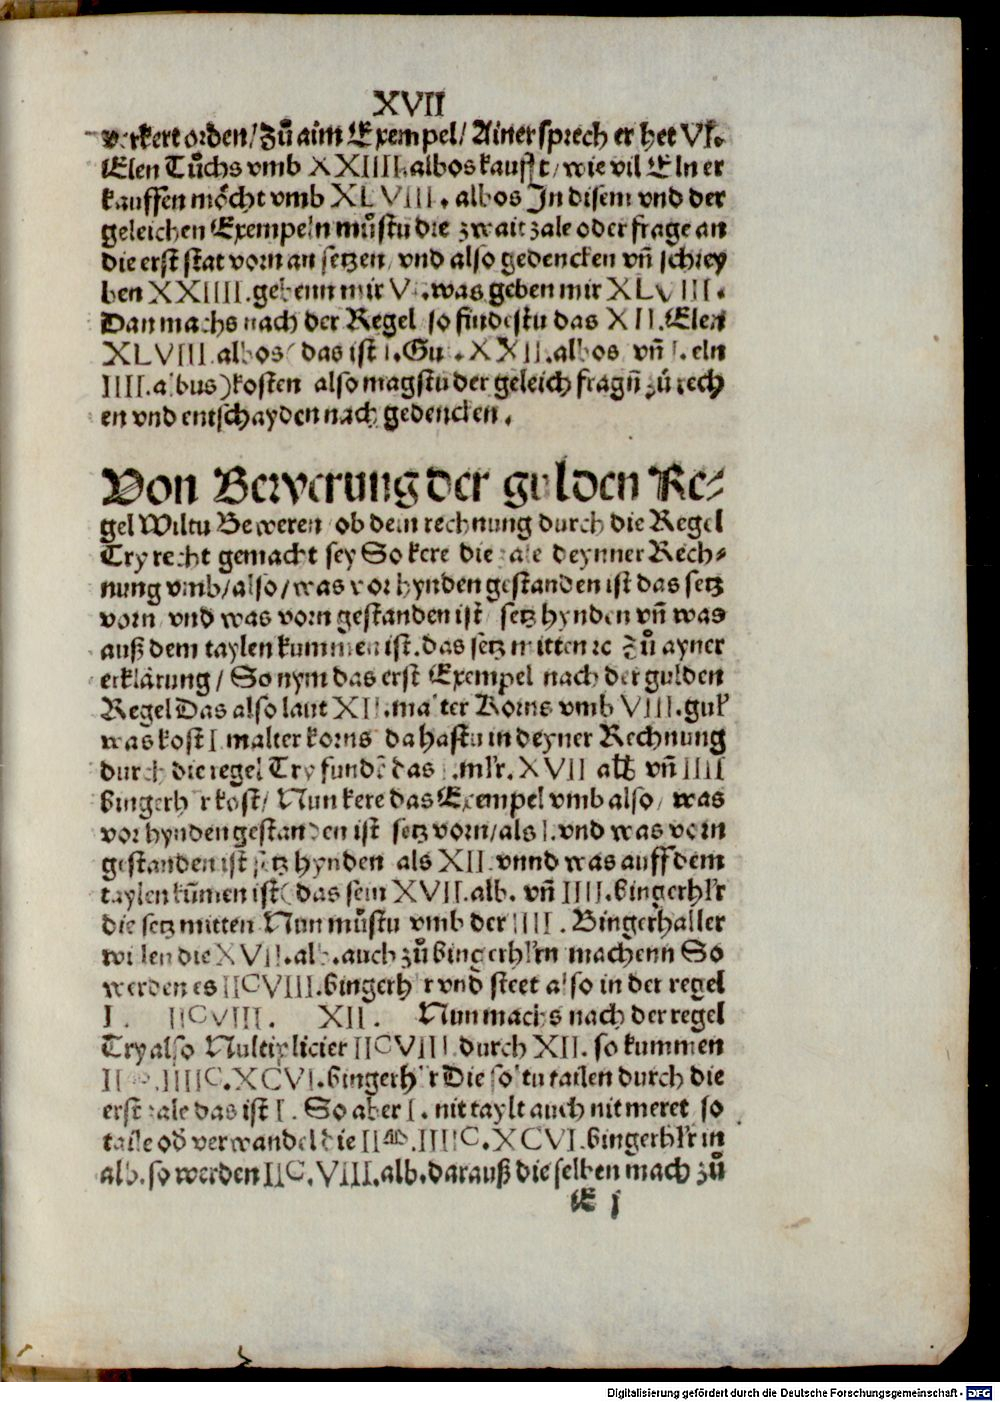 XVII
verkert orden/ Zů aim Exempel/ Ainer sprech er het VI.
Elen Tůchs vmb XXIIII. albos kaufft/ wie vil Eln er
kauffen möcht vmb XLVIII. albos In disem vnd der
geleichen Exempeln můstu die zwait zale oder frage an
die erst stat vorn an setzen/ vnd also gedencken vñ schrey
ben XXIIII. gebenn mir VI. was geben mir XLVIII.
Dan machs nach der Regel so findestu das XII. Elen
XLVIII albos (das ist I. Gu. XXII. albos vñ I. eln
IIII. albus) kosten also magstu der geleich fragñ zů rech
en vnd entschayden nach gedencken.
Von Bewerung der gulden Re⸗
gel Wiltu Beweren ob dein rechnung durch die Regel
Try recht gemacht sey So kere die zale deynner Rech⸗
nung vmb/ also/ was vor hynden gestanden ist das setz
vorn vnd was vorn gestanden ist/ setz hynden vñ was
auß dem taylen kummen ist. das setz mitten ꝛc Zů ayner
erklärung/ So nym das erst Exempel nach der gulden
Regel Das also laut XII. malter Korns vmb VIII. gul
was kost I malter korns da hastu in deyner Rechnung
durch die regel Try fundē das I. mlr. XVII alb vñ IIII
bingerhlr kost/ Nun kere das Exempel vmb also/ was
vor hynden gestanden ist setz vorn/ als I. vnd was vorn
gestanden ist setz hynden als XII. vnnd was auff dem
taylen kūmen ist (das sein XVII. alb. vñ IIII. bingerhlr
die setz mitten Nun můstu vmb der IIII. Bingerhaller
willen die XVII. alb. auch zů bingerhlrn machenn So
werden es IICVIII. bingerhlr vnd steet also in der regel
I. IICVIII. XII. Nun machs nach der regel
Try also Multiplicier IICVIII durch XII. so kummen
IIM. IIIIC. XCVI. bingerhlr Die soltu tailen durch die
erst zale das ist I. So aber I. nit taylt auch nit meret so
taile od verwandel die IIM. IIIIC. XCVI bingerhlr in
alb. so werden IIC. VIII. alb. darauß die selben mach zů
E j
Digitalisierung gefördert durch die Deutsche Forschungsgemeinschaft - DFG